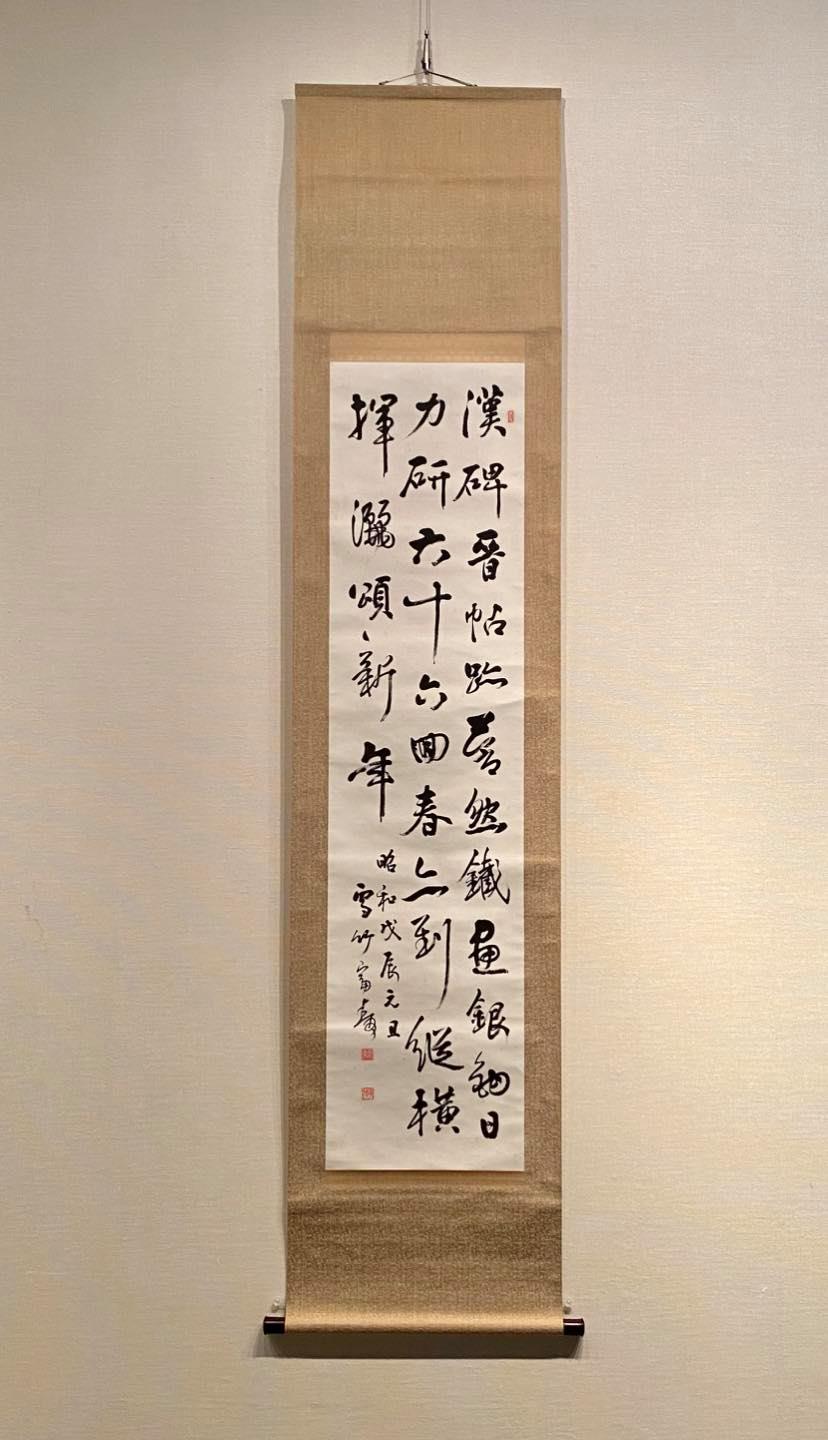 漢碑晋帖跡蒼然鐵畫銀鉤日
力研六十六回春亦到縱横
揮灑頌新年
昭和戊辰元旦
雪竹富